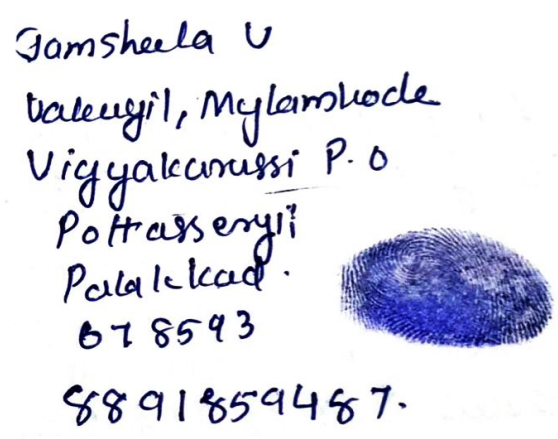 Jamsheela U
Valeugil, Mylamkode
Viyyakurussi P. O
Pottasseryil
Palakkad.
678593
8891859487.